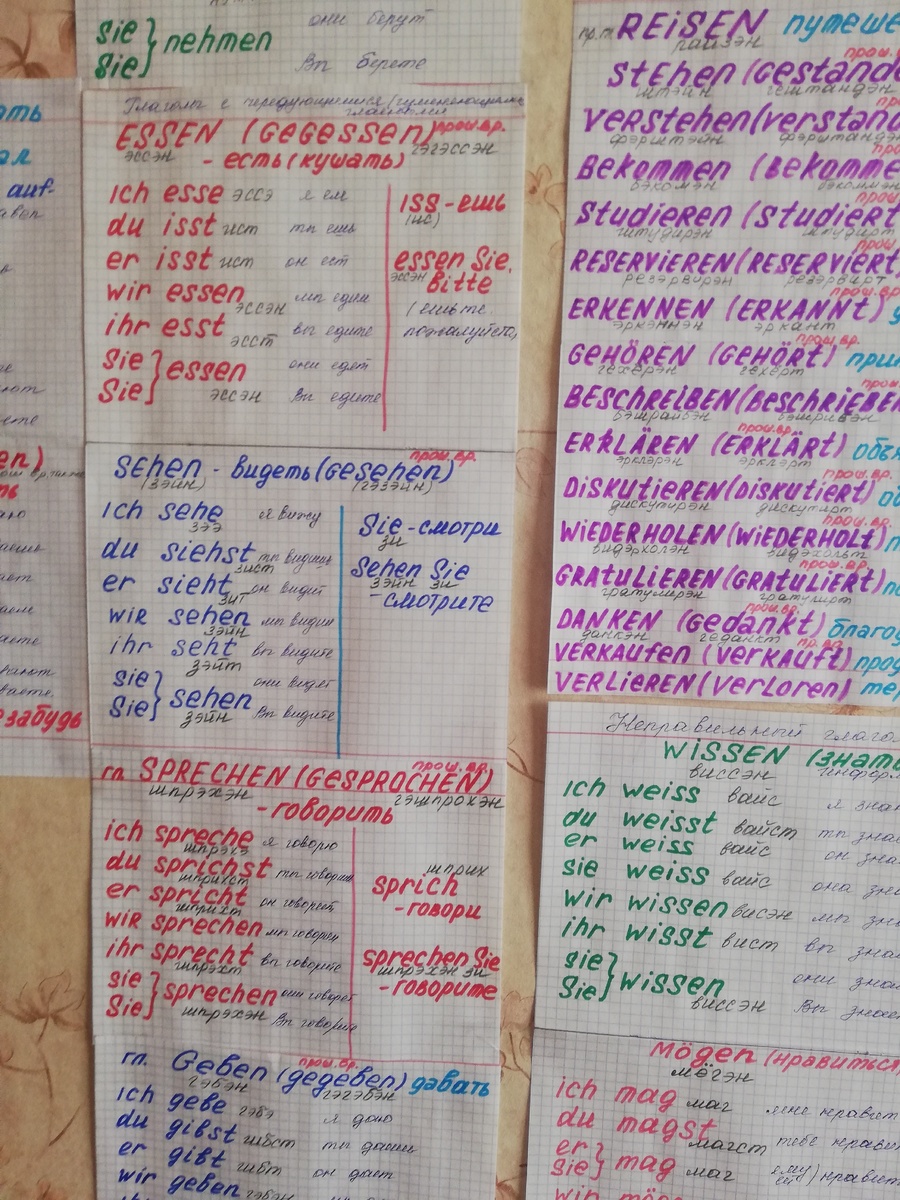 sie
Sie } nehmen
они берут
Вы берете
Глаголы с чередующейся
гласной
ESSEN (Gegessen) прош.вр.
эссэн гэгэссэн
- есть (кушать)
ich esse эссэ я ем
du isst ист ты ешь
er isst ист он ест
wir essen мы едим
эссэн
ihr esst вы едите
эсст
Sie они едят
Sie } essen
эссэн Вы едите
ISS - ешь
(ис)
essen Sie,
эссэн Bitte
(ешьте,
пожалуйста)
прош.вр.
SEHEN - видеть (Gesehen)
(зэйн) (гэзэйн)
ich sehe я вижу
зээ
du siehst ты видишь
зист
er sieht он видит
зит
wir sehen мы видим
зэйн
ihr seht вы видите
зэйт
sie они видят
Sie } sehen
зэйн Вы видите
Sie - смотри
зи
Sehen Sie
зэйн зи
- смотрите
прош.вр.
гл. SPRECHEN (GESPROCHEN)
шпрэхэн гэшпрохэн
- говорить
ich spreche я говорю
шпрэхэ
du sprichst ты говоришь
шприхст
er spricht он говорит
шприхт
wir sprechen мы говорим
ihr sprecht вы говорите
шпрэхт
sie они говорят
Sie } sprechen
шпрэхэн Вы говорите
шприх
sprich
- говори
sprechen Sie
шпрэхэн зи
- говорите
прош.вр.
гл. Geben (gegeben) давать
гэбэн гэгэбэн
ich gebe гэбэ я даю
du gibst гибст ты даешь
er gibt гибт он дает
wir geben гэбэн
ать
auf-
en)
забудь
пр.т. REISEN путеше
райзэн
прош.
STEHEN (Gestande
штэйн гештандэн
VERSTEHEN (verstand
фэрштэйн фэрштандэн
BEKOMMEN (Bekomme
бэкомэн бэкоммэн
STUDIEREN (Studiert
штудирэн штудирт
RESERVIEREN (RESERVIERT
резэрвирэн резэрвирт
ERKENNEN (ERKANNT)
эркэннэн эркант
прош.вр.
GEHÖREN (GEHÖRT) при
гехёрэн гехёрт
BESCHREIBEN (BESCHRIEBEN
бэшрайбэн бэшрибэн
прош.вр.
ERKLÄREN (ERKLÄRT) объя
эрклэрэн эрклэрт
прош.вр.
DISKUTIEREN (DISKUTIERT) об
дискутирэн дискутирт
прош.вр.
WIEDERHOLEN (WIEDERHOLT) п
видэрхолэн видэхольт
прош.вр.
GRATULIEREN (GRATULIERT) по
гратулирэн гратулирт
прош.вр.
DANKEN (Gedankt) благо
данкэн геданкт
VERKAUFEN (verkauft) прод
VERLIEREN (verloren) те
Неправильный глагол
WISSEN (знать
виссэн информ
ich weiss вайс я зна
du weisst вайст ты зна
er weiss вайс он зна
sie weiss вайс она зна
wir wissen висэн мы зна
ihr wisst вист вы зна
sie они зна
Sie } wissen
виссэн Вы знает
Mögen (нравиться)
мёгэн
ich mag маг мне нравит
du magst магст тебе нрави
er
sie } mag маг ему нравит
ей
wir mög